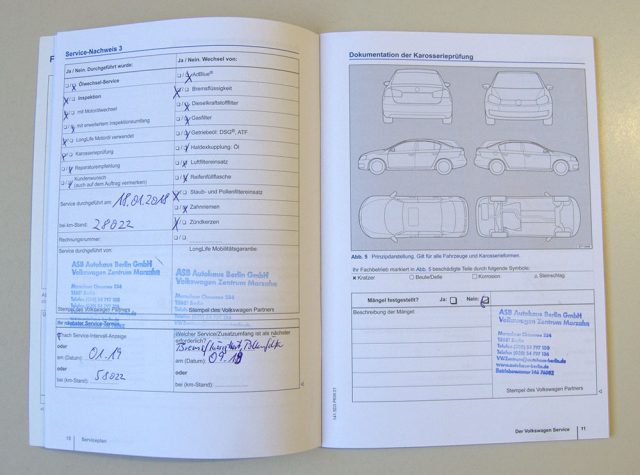 Service-Nachweis 3
Ja / Nein. Durchgeführt wurde:
Ölwechsel-Service
Inspektion
mit Motorölwechsel
mit erweitertem Inspektionsumfang
LongLife Motoröl verwendet
Karosserieprüfung
Reparaturempfehlung
Kundenwunsch
(auch auf dem Auftrag vermerken)
Service durchgeführt am: 18.01.2018
bei km-Stand: 28022
Rechnungsnummer:
Service durchgeführt von:
ASB Autohaus Berlin GmbH
Volkswagen Zentrum Marzahn
Stempel des Volkswagen Partners
Ihr nächster Service-Termin:
nach Service-Intervall-Anzeige
oder
am (Datum): 01.19
oder
bei (km-Stand): 58022
Ja / Nein. Wechsel von:
AdBlue®
Bremsflüssigkeit
Dieselkraftstofffilter
Gasfilter
Getriebeöl: DSG®, ATF
Haldexkupplung: Öl
Luftfiltereinsatz
Reifenfüllflasche
Staub- und Pollenfiltereinsatz
Zahnriemen
Zündkerzen
LongLife Mobilitätsgarantie
ASB Autohaus Berlin GmbH
Volkswagen Zentrum Marzahn
Stempel des Volkswagen Partners
Welcher Service/Zusatzumfang ist als nächster
erforderlich?
am (Datum):
oder
bei (km-Stand):
Serviceplan
Dokumentation der Karosserieprüfung
Abb. 5 Prinzipdarstellung. Gilt für alle Fahrzeuge und Karosserieformen.
Ihr Fachbetrieb markiert in Abb. 5 beschädigte Teile durch folgende Symbole:
Kratzer Beule/Delle Korrosion Steinschlag
Mängel festgestellt? Ja: Nein:
Beschreibung der Mängel:
ASB Autohaus Berlin GmbH
Volkswagen Zentrum Marzahn
Stempel des Volkswagen Partners
Der Volkswagen Service 11